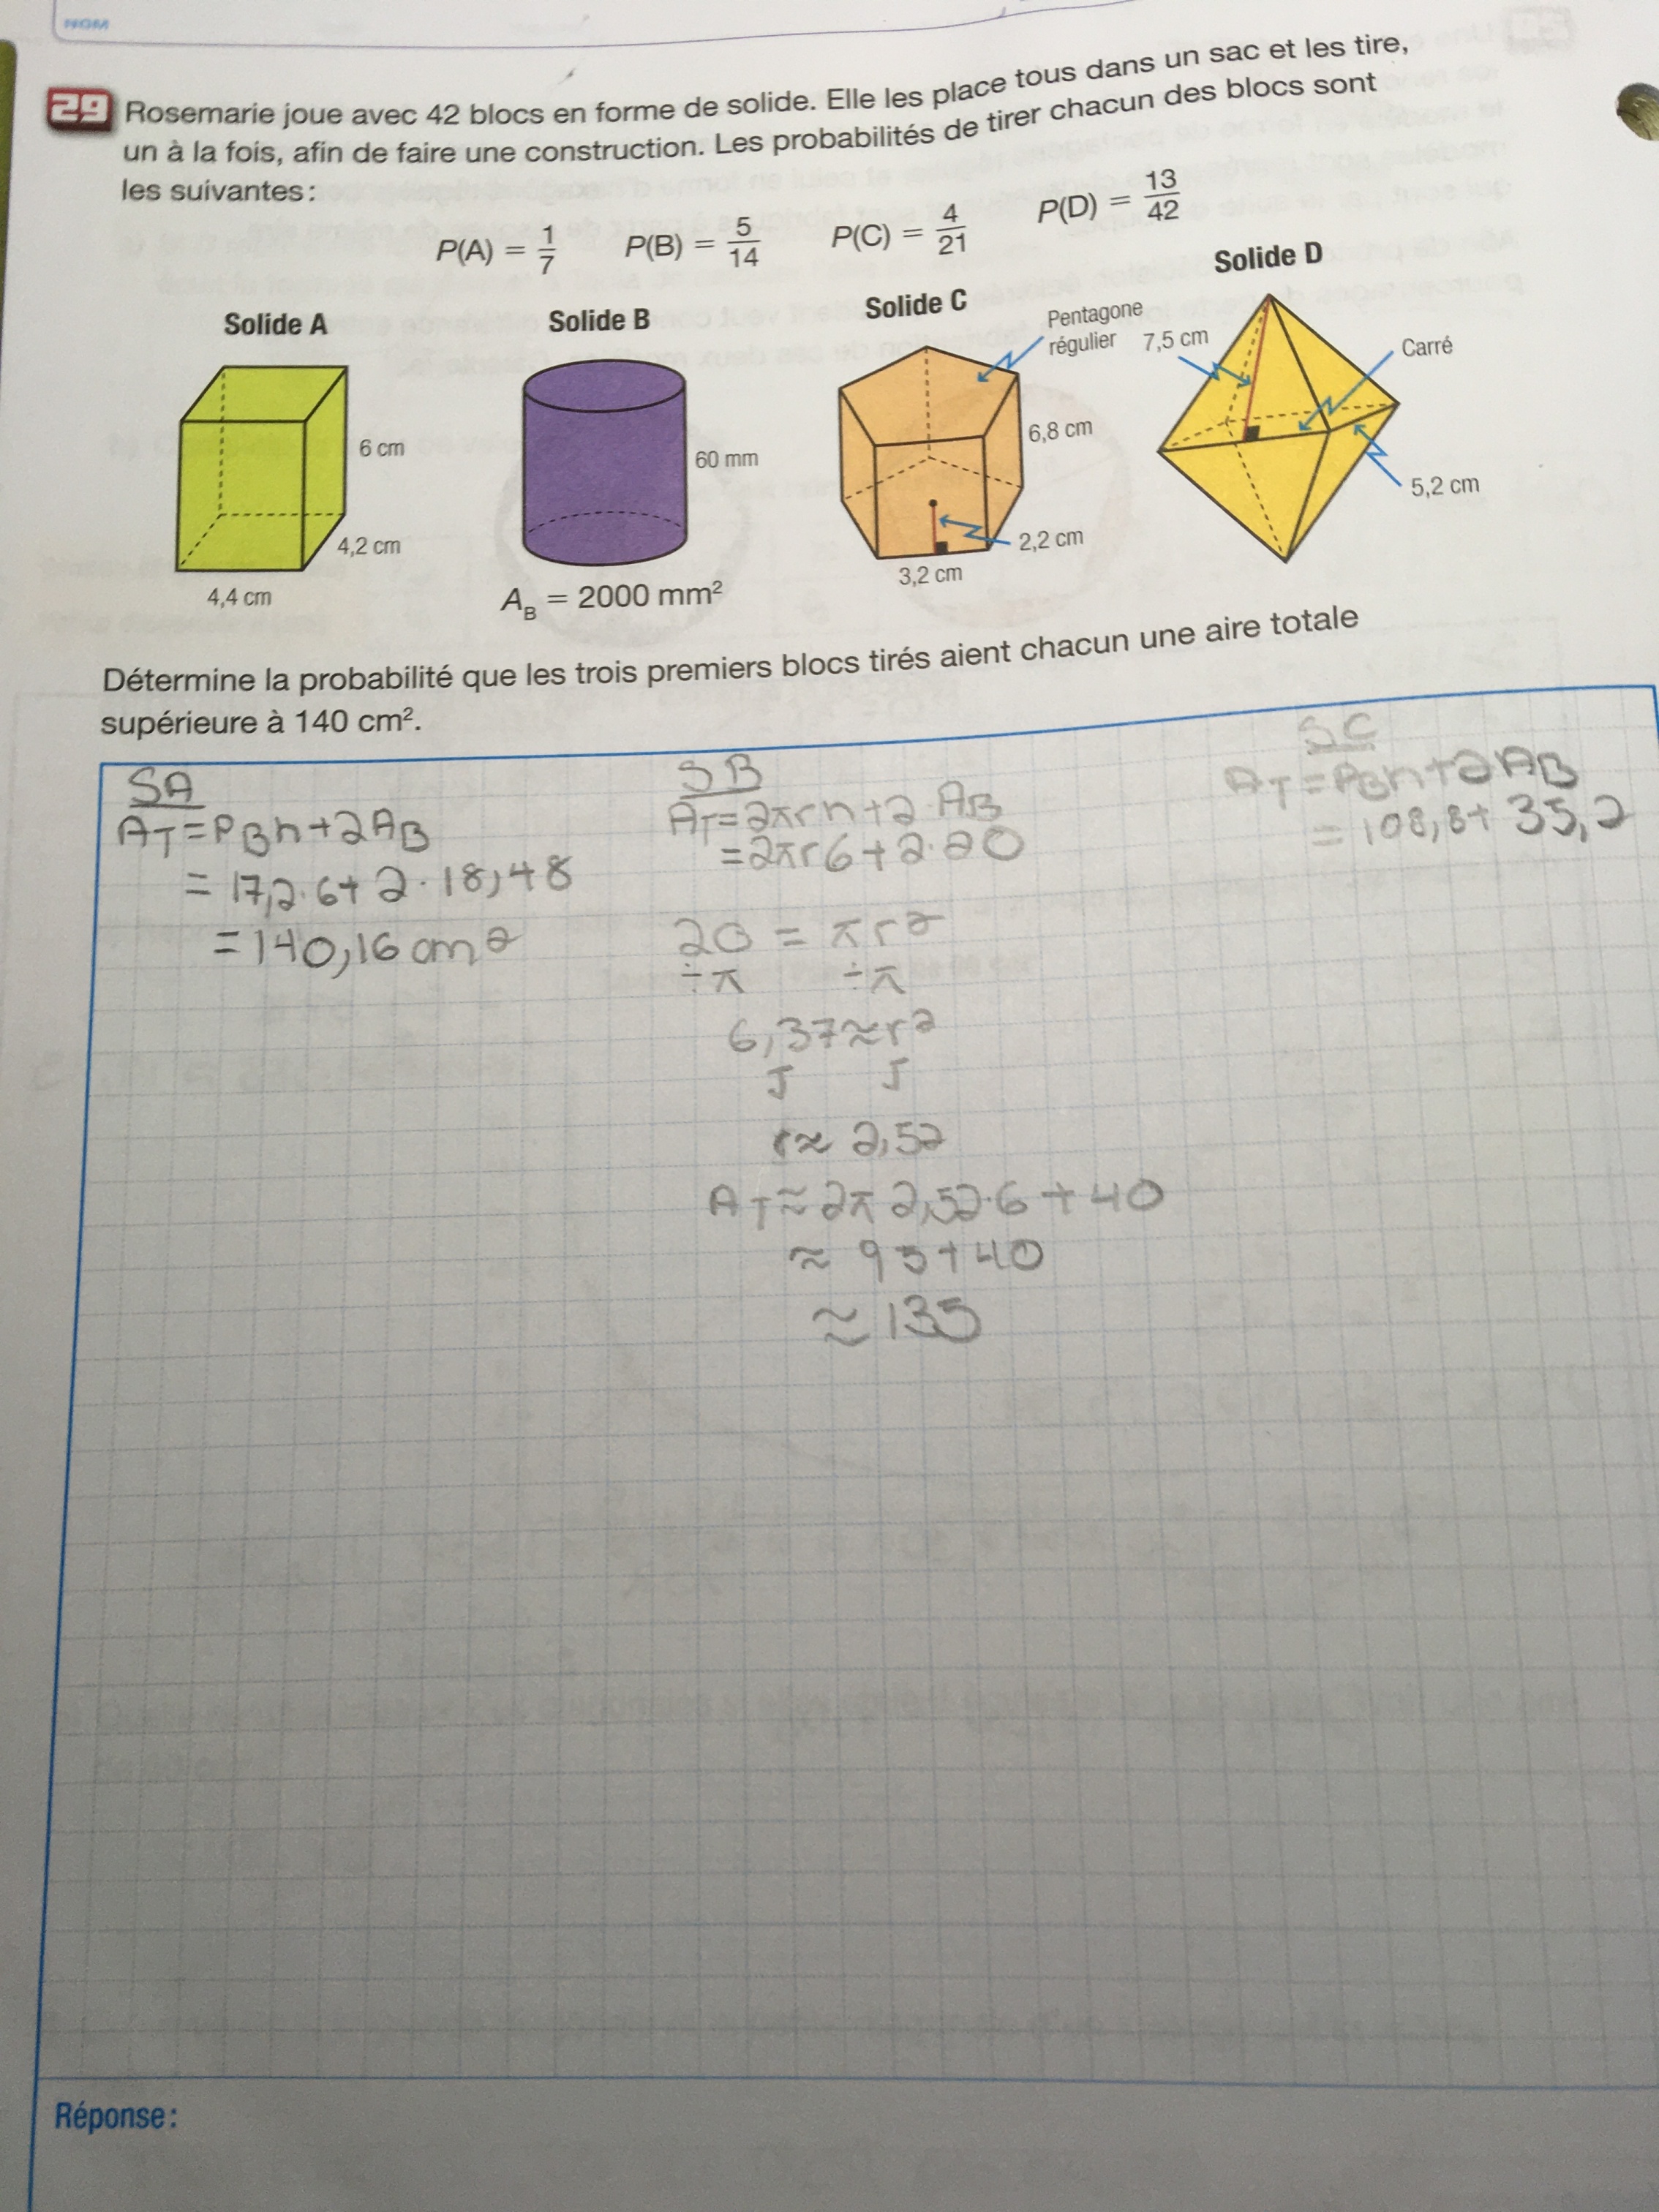 NOM
29 Rosemarie joue avec 42 blocs en forme de solide. Elle les place tous dans un sac et les tire,
un à la fois, afin de faire une construction. Les probabilités de tirer chacun des blocs sont
les suivantes :
P(A) = 1/7 P(B) = 5/14 P(C) = 4/21 P(D) = 13/42
Solide A Solide B Solide C Solide D
Pentagone
régulier
7,5 cm
Carré
6 cm
60 mm
6,8 cm
5,2 cm
4,2 cm
2,2 cm
4,4 cm
A_B = 2000 mm²
3,2 cm
Détermine la probabilité que les trois premiers blocs tirés aient chacun une aire totale
supérieure à 140 cm².
SA
A_T = P_B h + 2A_B
= 17,2·6 + 2·18,48
= 140,16 cm²
SB
A_T = 2πrh + 2·A_B
= 2πr6 + 2·20
20 = πr²
÷π ÷π
6,37 ≈ r²
√ √
r ≈ 2,52
A_T ≈ 2π 2,52·6 + 40
≈ 95 + 40
≈ 135
SC
A_T = P_B h + 2A_B
= 108,8 + 35,2
Réponse :